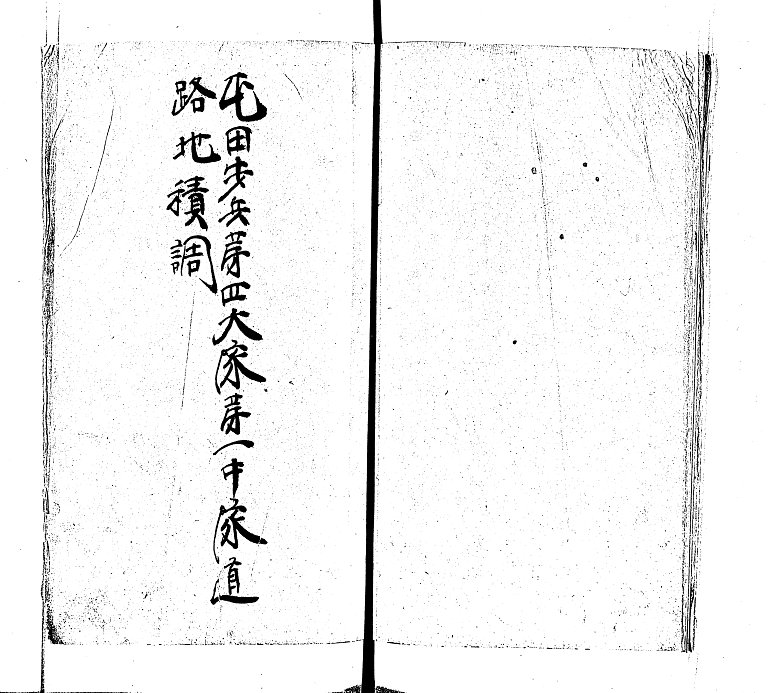 屯田歩兵第四大家第一中家道
路地積調